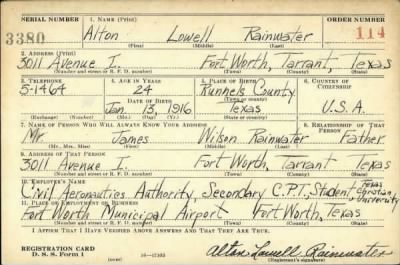 SERIAL NUMBER 1. NAME (Print) ORDER NUMBER
3380 Alton Lowell Rainwater 114
(First) (Middle) (Last)
2. ADDRESS (Print)
3011 Avenue I. Fort Worth, Tarrant, Texas
(Number and street or R. F. D. number) (Town) (County) (State)
3. TELEPHONE 4. AGE IN YEARS 5. PLACE OF BIRTH 6. COUNTRY OF CITIZENSHIP
5-1464 24 Runnels County
(Town or county)
DATE OF BIRTH
Jan. 13, 1916 Texas U.S.A.
(Exchange) (Number) (Mo.) (Day) (Yr.) (State or country)
7. NAME OF PERSON WHO WILL ALWAYS KNOW YOUR ADDRESS 8. RELATIONSHIP OF THAT PERSON
Mr. James Wilson Rainwater Father
(Mr., Mrs., Miss) (First) (Middle) (Last)
9. ADDRESS OF THAT PERSON
3011 Avenue I. Fort Worth, Tarrant Texas
(Number and street or R. F. D. number) (Town) (County) (State)
10. EMPLOYER'S NAME
Civil Aeronautics Authority, Secondary C.P.T., Student Texas Christian University
11. PLACE OF EMPLOYMENT OR BUSINESS
Fort Worth Municipal Airport Fort Worth, Texas
(Number and street or R. F. D. number) (Town) (County) (State)
I AFFIRM THAT I HAVE VERIFIED ABOVE ANSWERS AND THAT THEY ARE TRUE.
REGISTRATION CARD
D. S. S. Form 1 (over) 16—17105 Alton Lowell Rainwater
(Registrant's signature)